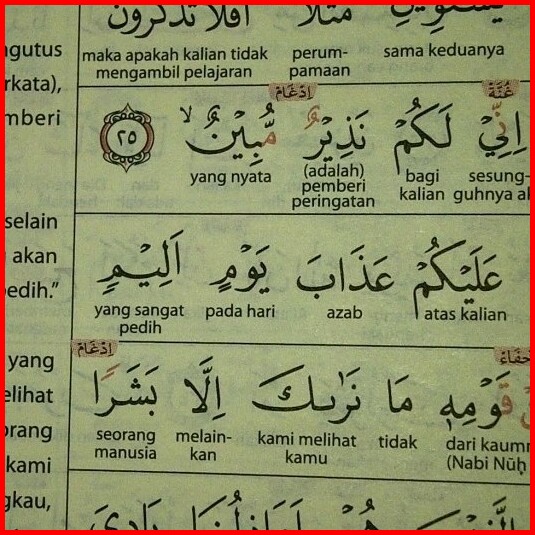 أفلا تذكرون
maka apakah kalian tidak mengambil pelajaran
perum-pamaan
sama keduanya
gutus
rkata),
mberi
اِدْغَامْ
غُنَّة
اِنِّيْ لَكُمْ نَذِيْرٌ مُّبِيْنٌ ۙ ٢٥
yang nyata
(adalah) pemberi peringatan
bagi kalian
sesung-guhnya
selain
akan
edih.”
عَلَيْكُمْ عَذَابَ يَوْمٍ اَلِيْمٍ
yang sangat pedih
pada hari
azab
atas kalian
yang
elihat
orang
kami
gkau,
اِدْغَامْ
قَوْمِهٖ مَا نَرٰىكَ اِلَّا بَشَرًا
seorang manusia
melain-kan
kami melihat kamu
tidak
dari kaum
(Nabi Nūḥ